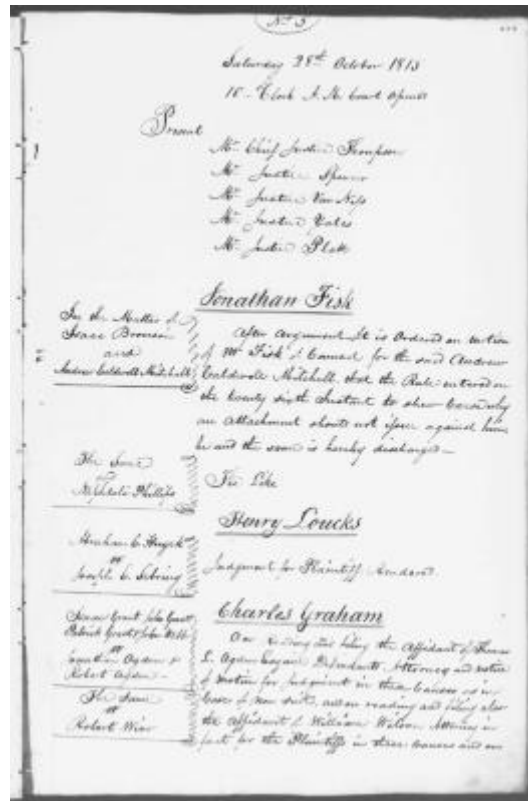 No 5
Saturday 28th October 1815
10 Clock A.M. Court opened
Present
Mr Chief Justice Thompson
Mr Justice Spencer
Mr Justice Van Ness
Mr Justice Yates
Mr Justice Platt
Jonathan Fisk
In the Matter of
Isaac Bronson
and
Andrew Caldwell Mitchell
After argument It is Ordered on motion
of Mr Fisk of Counsel for the said Andrew
Caldwell Mitchell that the Rule entered on
the twenty sixth Instant to shew Cause why
an Attachment should not issue against him
be and the same is hereby discharged
The Same
Naphtali Phillips
The Like
Henry Loucks
Abraham
Joseph C.
Judgment for Plaintiff
Charles Graham
Grant John Grant
Patrick Grant & John Webb
Jonathan Ogden &
Robert Ogden
On reading and filing the Affidavit of Thomas
L. Ogden Defendants Attorney and notice
of Motion for Judgment in these Causes as in
Cases of non suit, and on reading and filing also
the Affidavit of William Wilson Attorney in
fact for the Plaintiffs in these causes and on
The Same
Robert